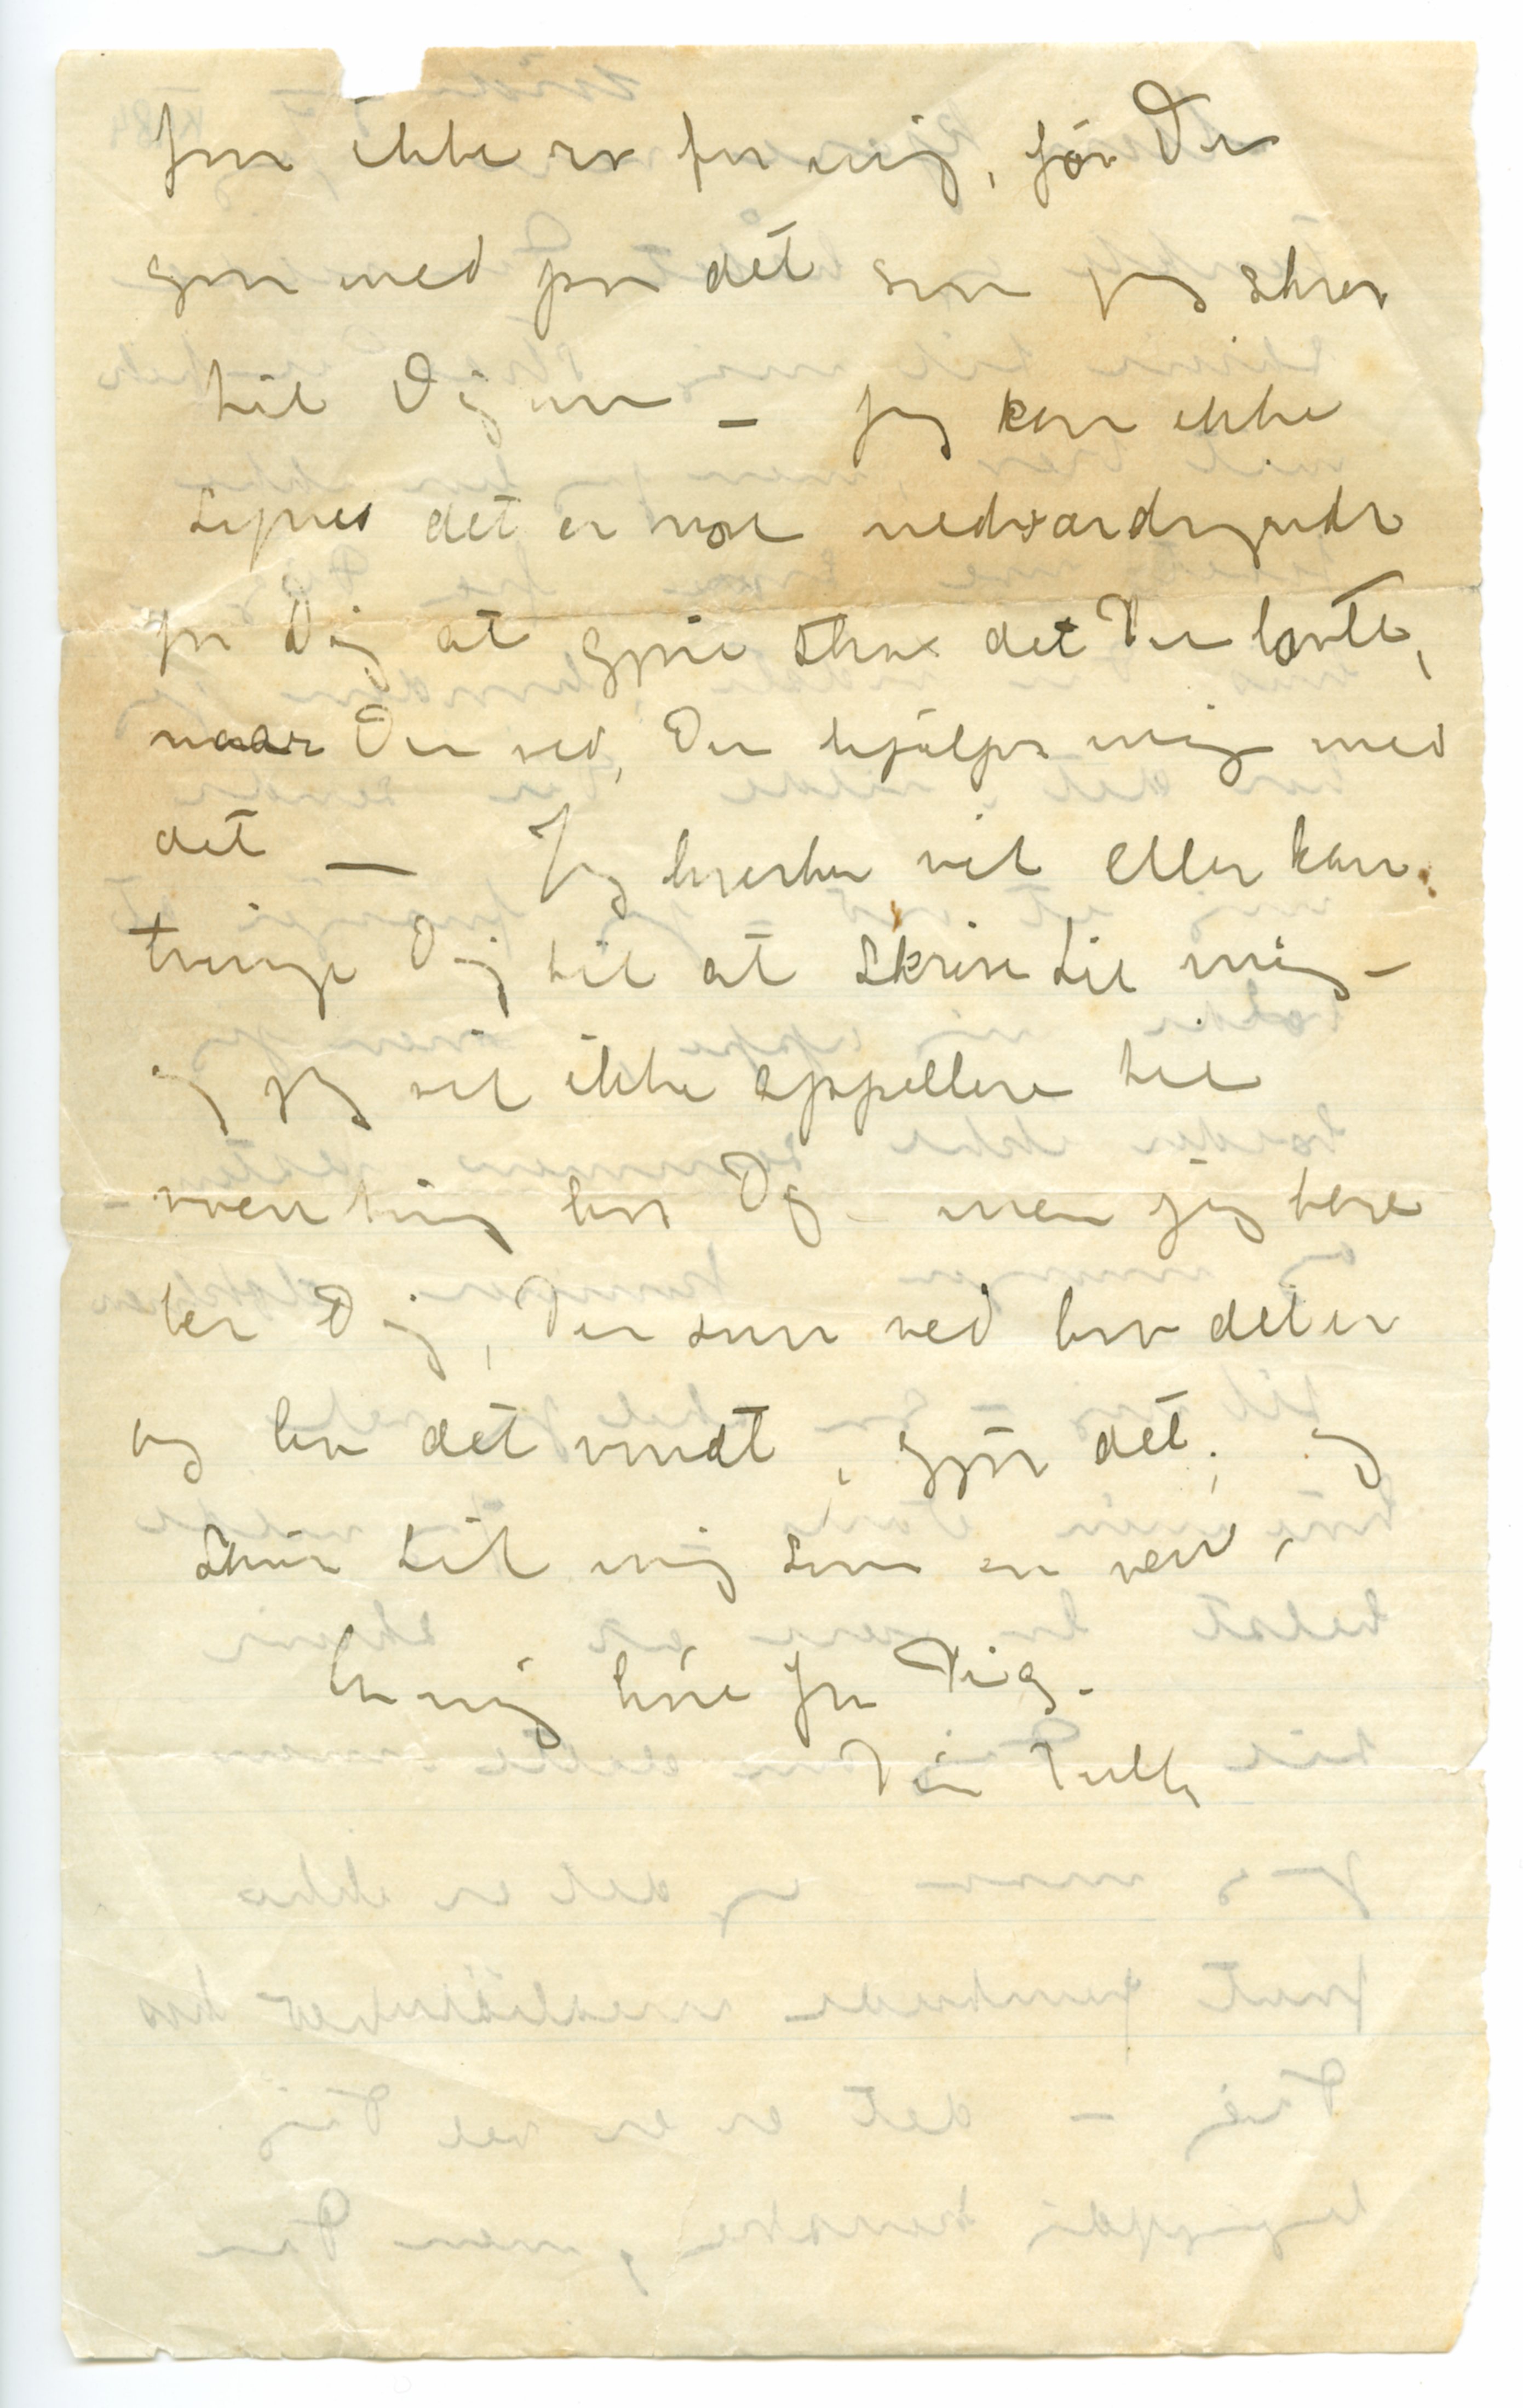 faar ikke ro for mig, før Du
gaar med paa det som jeg skrev
til Dig om — jeg kan ikke
synes det er noe nedværdigende
for Dig at gjøre strax det Du lovte,
naar Du ved, Du hjælper mig med
det — Jeg hverken vil eller kan
tvinge Dig til at skrive til mig –
og jeg vil ikke appellere til
noen ting hos Dig – men jeg bare
ber Dig, Du som ved hvor det er
og har det ondt, gjør det, og
skriv til mig som en ven,
La mig høre fra Dig.
Din Tulla